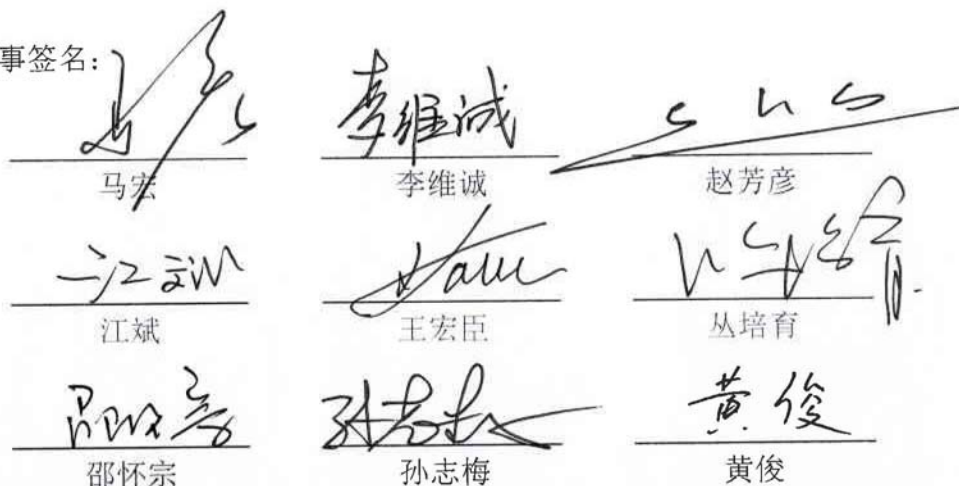 事签名:
李维诚
马宏 李维诚 赵芳彦
江斌
江斌 王宏臣 丛培育
黄俊
邵怀宗 孙志梅 黄俊